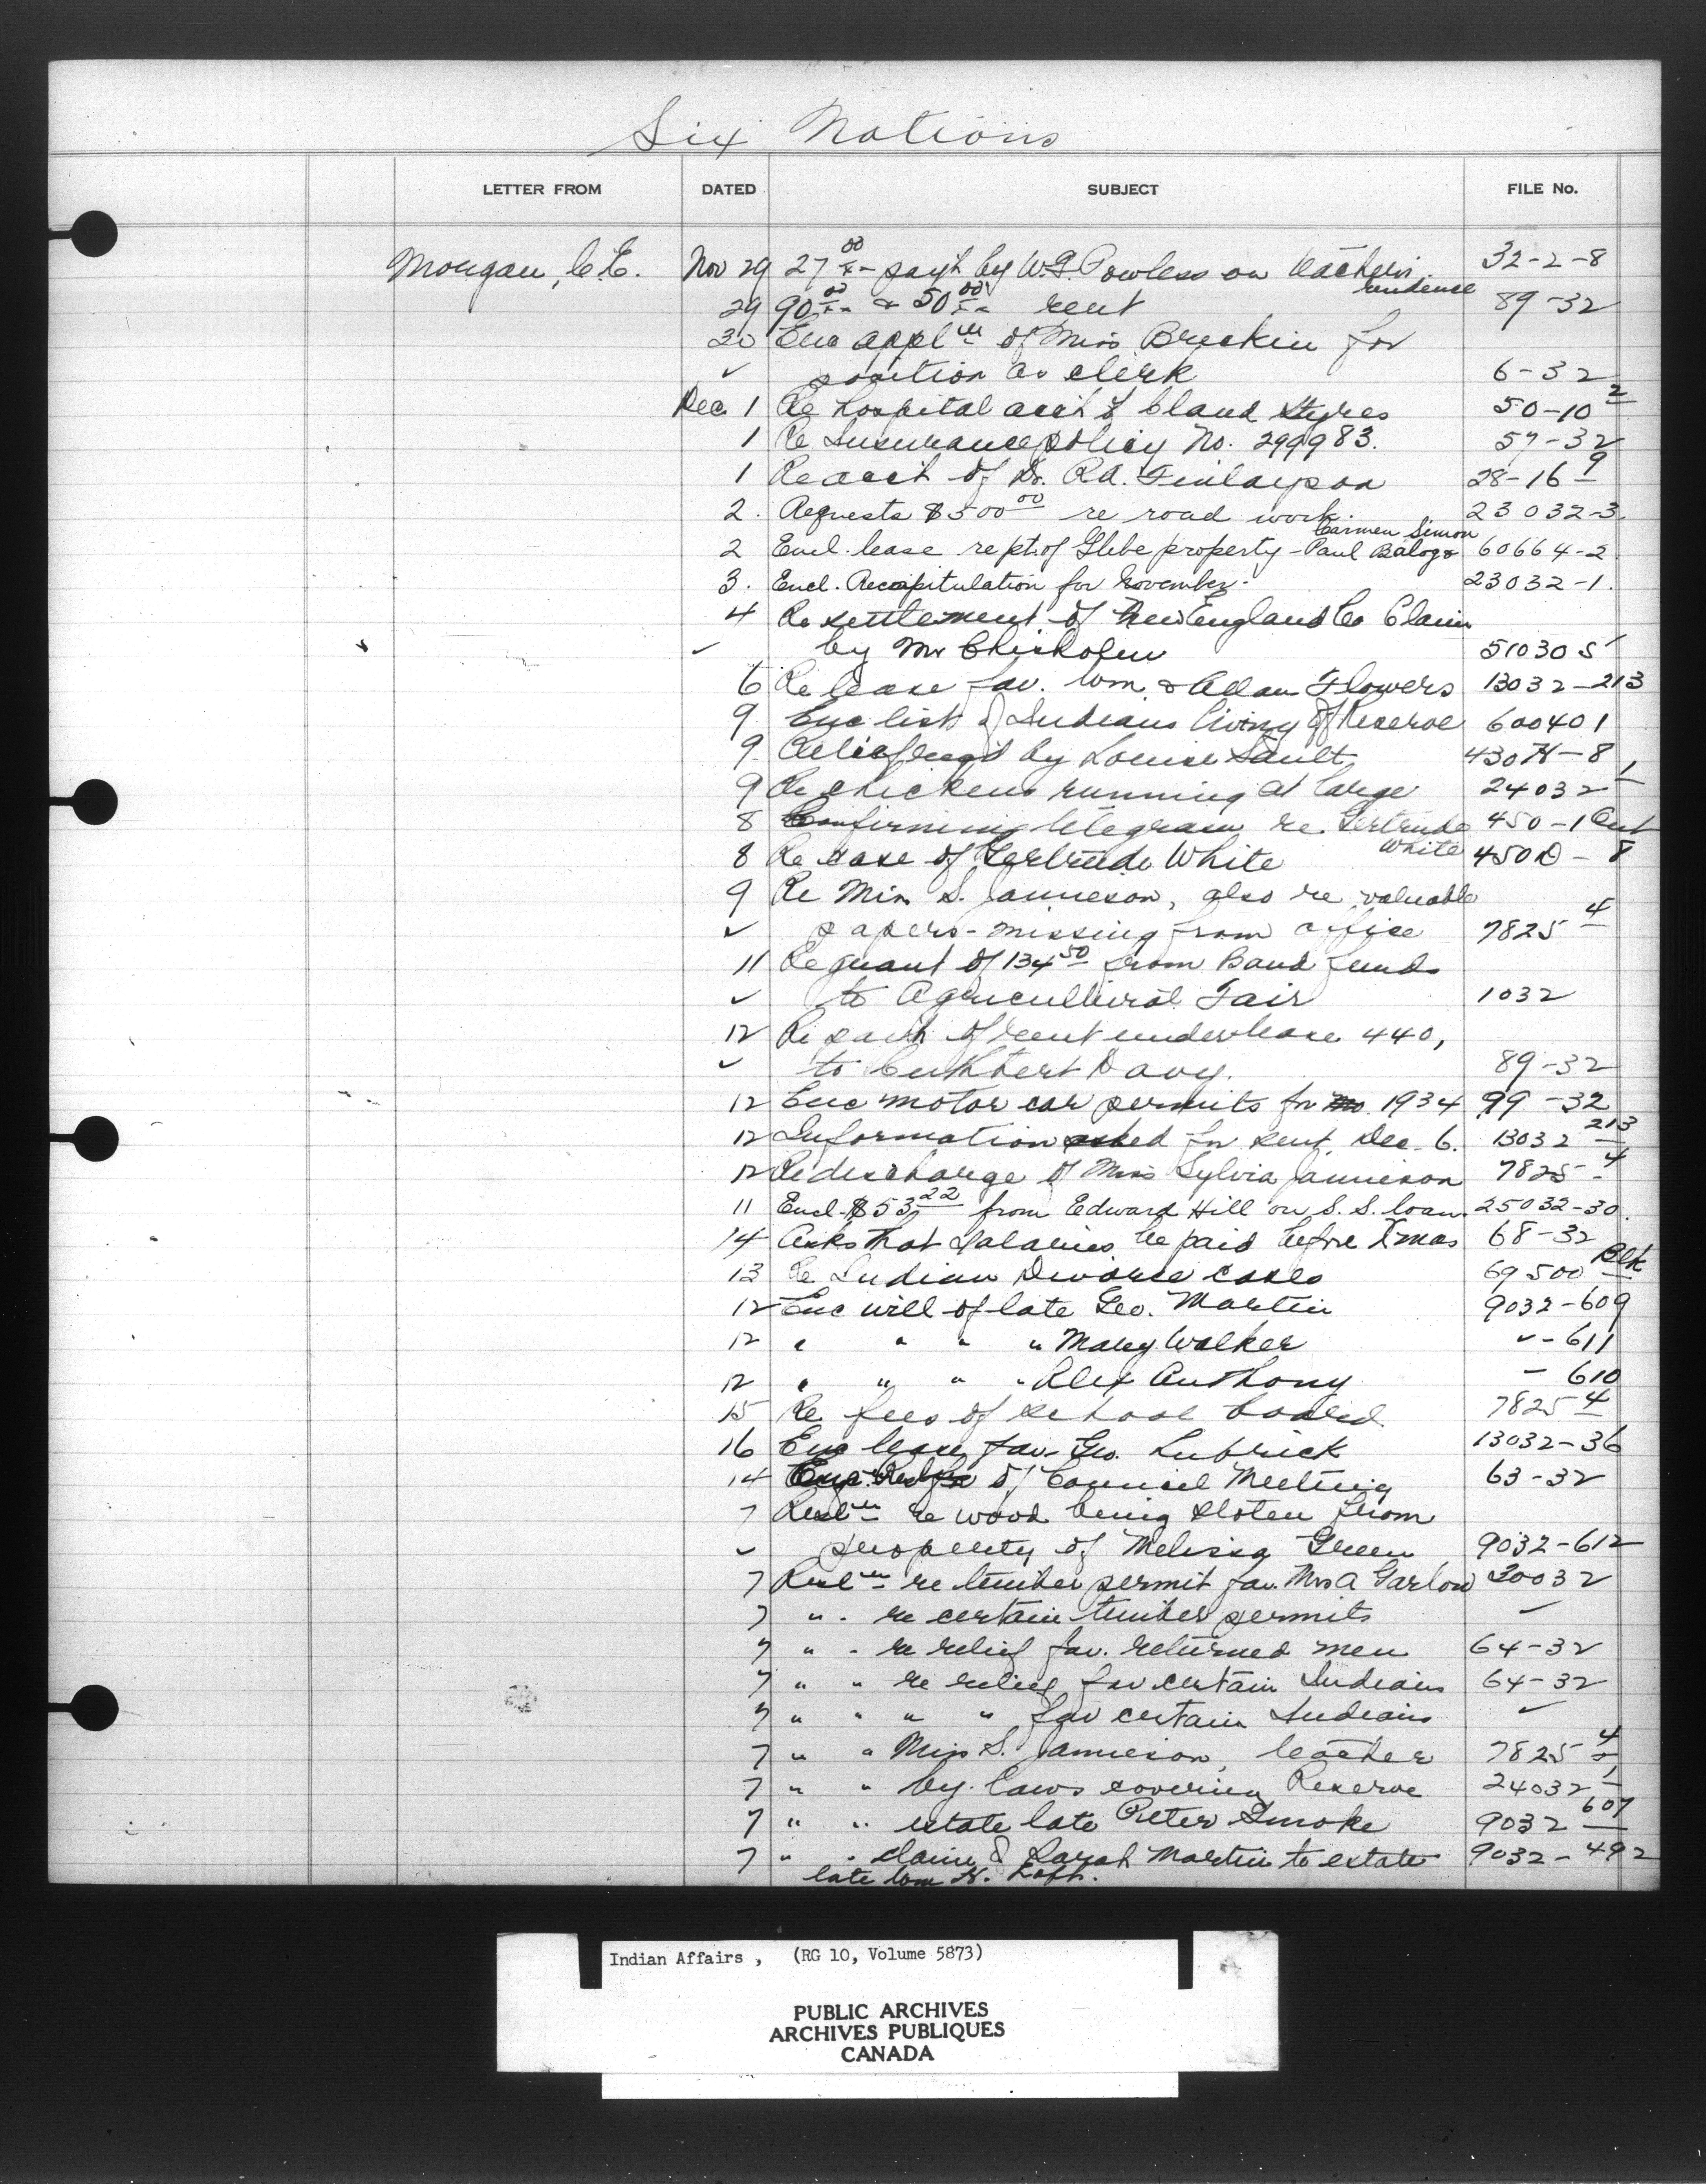 Six Nations
LETTER FROM DATED SUBJECT FILE No.
Morgan, C.E. Nov 29 27 00/xx payt by W.G. Powless on teacher's residence 32-2-8
29 90 00/xx & 50 00/xx rent 89-32
30 Enc applⁿ of Miss Breckin for
✓ position as clerk 6-32
Dec 1 Re hospital acct of Claud Styres 50-10 2
1 Re Insurance policy No. 299983. 57-32
1 Re acct of Dr. R.A. Finlayson 28-16 9
2. Requests $500 00 re road work. 23032-3.
2 Encl. lease rept. of Glebe property - Paul Balog & Carmen Simon 60664-2
3. Encl. Recapitulation for November. 23032-1.
4 Re settlement of New England Co Claim
✓ by Mr Chisholm 51030 5
6 Re lease fav. Wm. & Allan Flowers 13032-213
9 Enc list of Indians living off Reserve 600401
9 Relief reqd by Louise Sault 430H-8
9 Re chickens running at large 24032 1
8 Confirming telegram re. Gertrude White 450-1 Ont
8 Re case of Gertrude White 450D-8
9 Re Miss S. Jamieson, also re valuable
✓ papers - missing from office 7825 4
11 Re grant of 134 50 from Band funds
✓ to Agricultural Fair 1032
12 Re payt of rent under lease 440,
✓ to Cuthbert Davy. 89-32
12 Enc motor car permits for 1934 99-32
12 Information asked for sent, Dec. 6. 13032 213
12 Re discharge of Miss Sylvia Jamieson 7825-4
11 Encl. $53 22 from Edward Hill on S. S. loan. 25032-30.
14 Asks that salaries be paid before Xmas 68-32
13 Re Indian Divorce cases 69500 Blk
12 Enc will of late Geo. Martin 9032-609
12 " " " " Mary Walker ✓ - 611
12 " " " " Alex Anthony - 610
15 Re fees of school board 7825 4
16 Enc lease fav. Geo. Lubrick 13032-36
14 of Council Meeting 63-32
7 Reslⁿ re wood being stolen from
✓ property of Melissa Green 9032-612
7 Reslⁿ re timber permit fav. Mrs A Garlow 20032
7 " . re certain timber permits ✓
7 " - re relief fav. returned men 64-32
7 " " re relief fav certain Indians 64-32
7 " " " " fav certain Indians ✓
7 " " Miss S. Jamieson, teacher 7825 4
7 " " by. laws covering Reserve 24032 1
7 " " estate late Peter Smoke 9032 607
7 " . claim of Sarah Martin to estate 9032-492
late Wm H. Loft.
Indian Affairs , (RG 10, Volume 5873)
PUBLIC ARCHIVES
ARCHIVES PUBLIQUES
CANADA